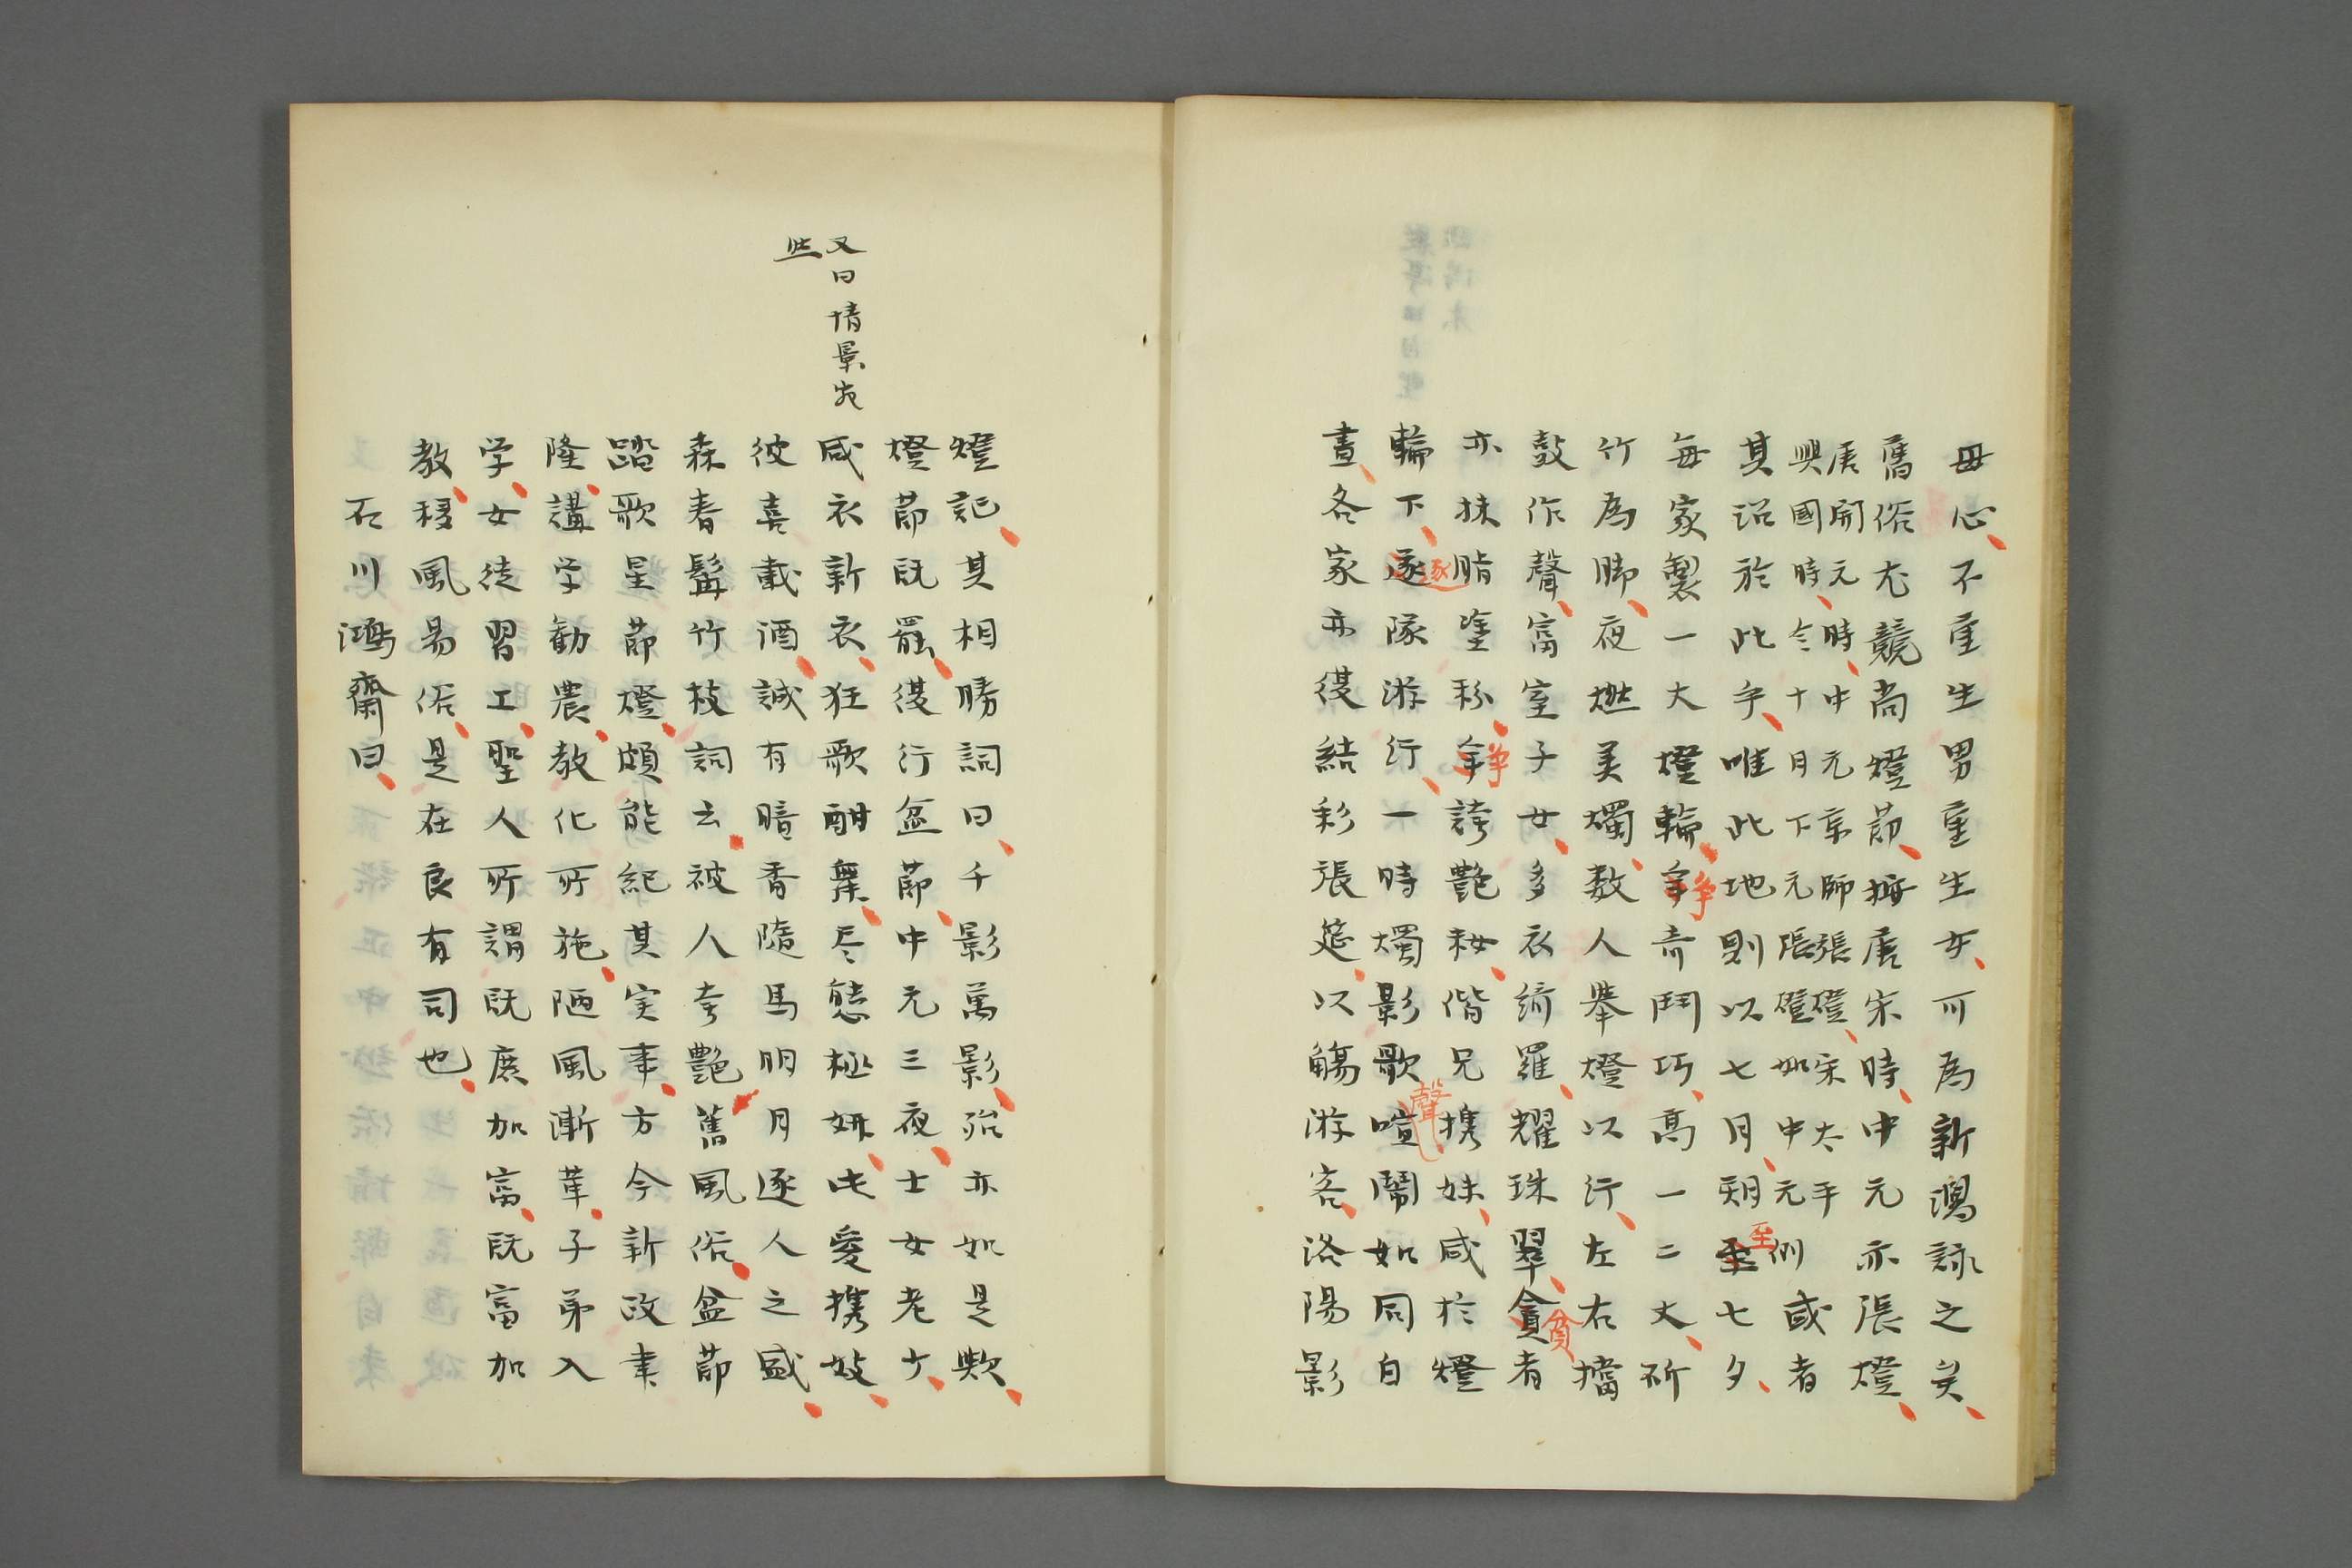 母心、不重生男重生女、可為新潟詠之矣、
舊俗尤競尚燈節、按唐宋時、中元亦張燈、
唐開元時、中元京師張燈、宋太平
興國時、令十月下元張燈如中元例或者
其沿於此乎、唯此地則以七月朔至七夕、
至
每家製一大燈輪、争奇鬥巧、高一二丈、斫
争
竹為脚、夜燃美燭、数人舉燈以行、左右擂
鼓作聲、富室子女、多衣綺羅、耀珠翠、貪者
貧
亦抹脂塗粉、争誇艶粧、偕兄携妹、咸於燈
争
輪下、逐隊游行、一時燭影歌喧鬧如同白
逐
聲
晝、各家亦復結彩張筵、以觴游客、洛陽影
又曰情景宛
然
燈記、其相勝詞曰、千影萬影、殆亦如是歟、
燈節既罷、復行盆節、中元三夜、士女老少、
咸衣新衣、狂歌酣舞、尽態極妍、此愛携妓、
彼喜載酒、誠有暗香隨馬明月逐人之盛、
森春髯竹枝詞云、被人夸艶舊風俗、盆節
踏歌星節燈、頗能紀其実事、方今新政聿
隆、講学勧農、教化所施、陋風漸革、子弟入
学、女徒習工、聖人所謂既庶加富、既富加
教、移風易俗、是在良有司也、
石川鴻齋曰、